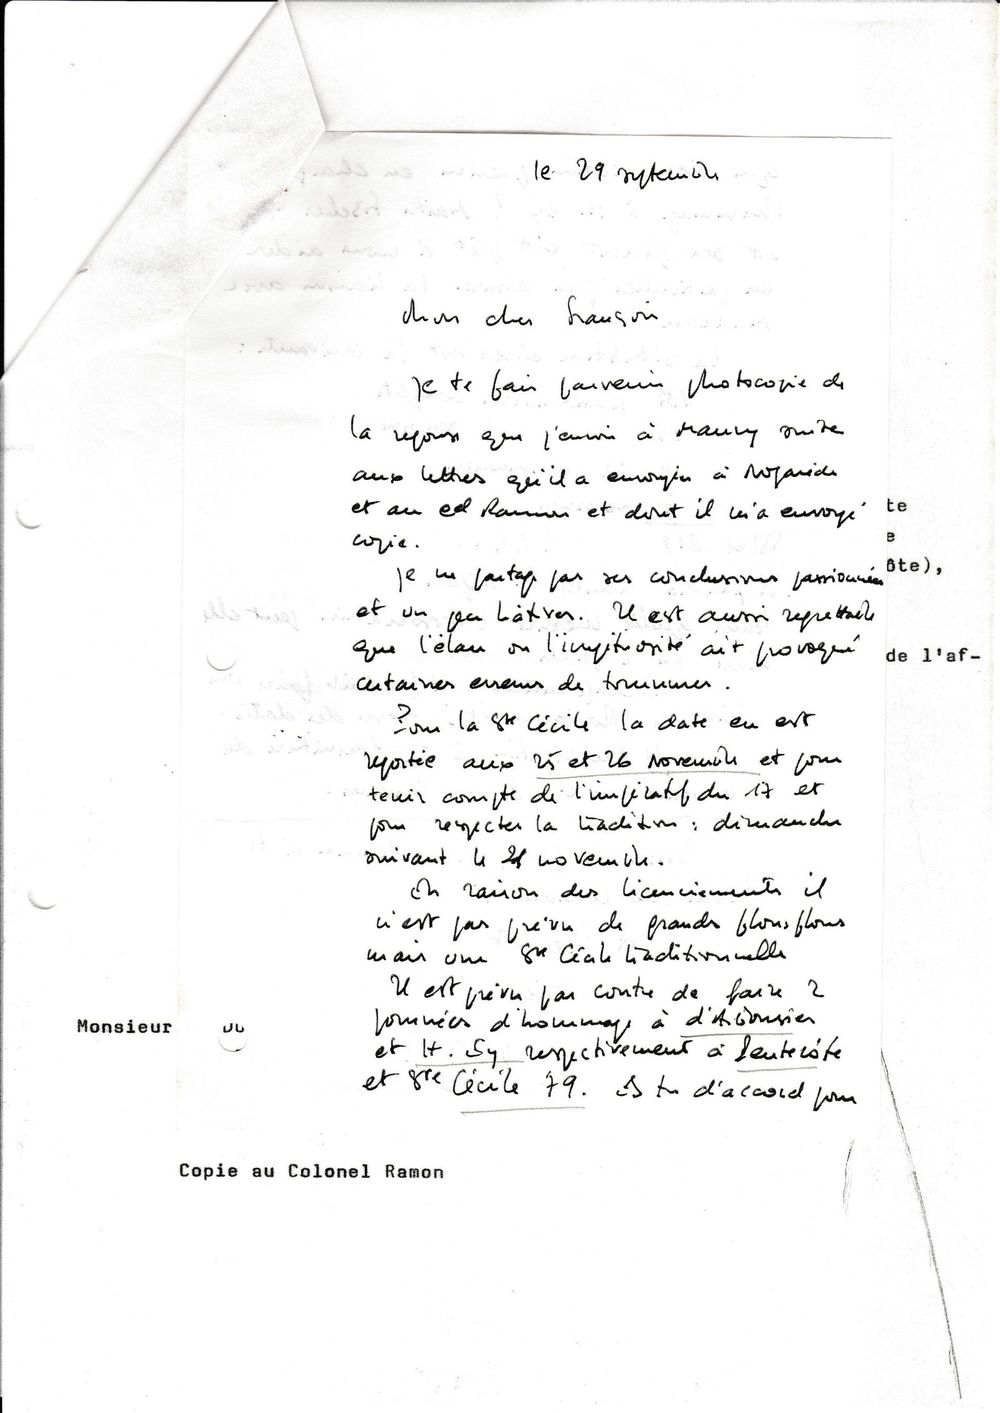 le 29 septembre
Mon cher François
Je te fais parvenir photocopie de
la réponse que j'envoie à Mauny suite
aux lettres qu'il a envoyées à
et au Cel Ramon et dont il m'a envoyé
copie.
Je ne partage pas ses conclusions passionnées
et un peu hâtives. Il est aussi regrettable
que l'élan ou l'impétuosité ait provoqué
certaines erreurs de
Pour la Ste Cécile la date en est
reportée aux 25 et 26 Novembre et pour
tenir compte de l'impératif du 17 et
pour respecter la tradition : dimanche
suivant le 21 novembre.
En raison des licenciements il
n'est pas prévu de grands flonsflons
mais une Ste Cécile traditionnelle
Il est prévu par contre de faire 2
journées d'hommage à
et H. Sy respectivement à Pentecôte
et Ste Cécile 79. Es tu d'accord pour
te
e
ôte),
de l'af-
Monsieur
Copie au Colonel Ramon